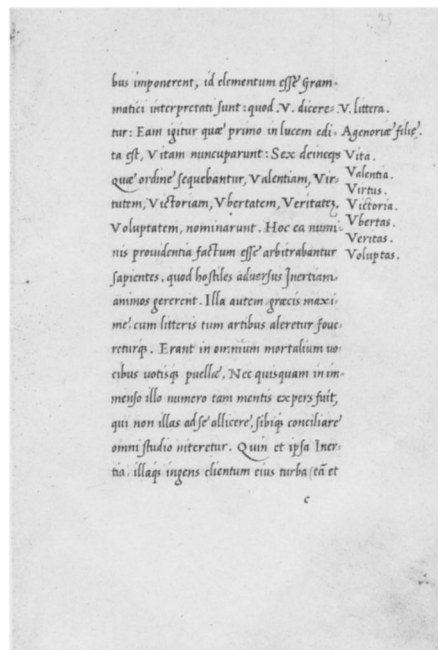 bus imponerent, id elementum esse Gram-
matici interpretati sunt: quod .V. dicere-
tur: Eam igitur quæ primo in lucem edi-
ta est, Vitam nuncuparunt: Sex deinceps
Quæ ordine sequebantur, Valentiam, Vir-
tutem, Victoriam, Vbertatem, Veritatẽ,
Voluptatem, nominarunt. Hoc ea numi-
nis providentia factum esse arbitrabantur
sapientes, quod hostiles adversus Inertiam
animos gererent. Illa autem græcis maxi-
me cum litteris tum artibus aleretur, fove-
returq. Erant in omnium mortalium uo-
cibus uotisq puellæ, Nec quisquam in im-
menso illo numero tam mentis expers fuit,
qui non illas ad se allicere, sibiq conciliare
omni studio niteretur. Quin et ipsa Iner-
tia, illaq ingens clientum eius turba (tã et
c
V. littera.
Agenoriæ filiæ.
Vita.
Valentia.
Virtus.
Victoria.
Vbertas.
Veritas.
Voluptas.